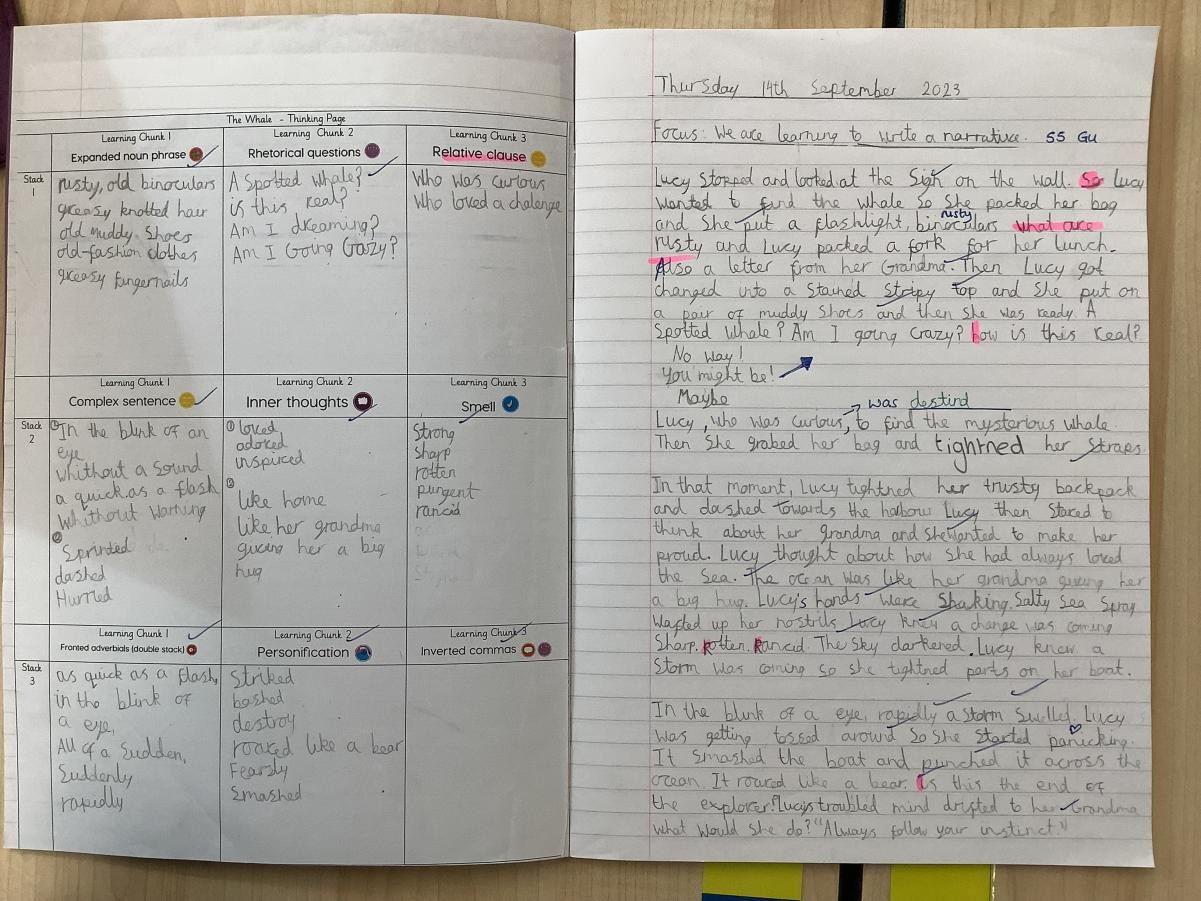 The Whale - Thinking Page
Learning Chunk 1
Expanded noun phrase
Learning Chunk 2
Rhetorical questions
Learning Chunk 3
Relative clause
Stack
1
rusty, old binoculars
greasy knotted hair
old muddy shoes
old-fashion clothes
greasy fungernails
A Spotted whale?
is this real?
Am I dreaming?
Am I Going Crazy?
Who was curious
Who loved a chalenge
Learning Chunk 1
Complex sentence
Learning Chunk 2
Inner thoughts
Learning Chunk 3
Smell
Stack
2
① In the blink of an
eye
whithout a sound
a quick as a flash
Whithout warning
②
Sprinted
dashed
Hurried
① loved
adored
inspired
②
like home
like her grandma
giving her a big
hug
Strong
Sharp
rotten
purgent
rancid
Learning Chunk 1
Fronted adverbials (double stack)
Learning Chunk 2
Personification
Learning Chunk 3
Inverted commas
Stack
3
as quick as a flash,
in the blink of
a eye,
All of a sudden,
Suddenly
rapidly
Striked
bashed
destroy
roared like a bear
Fearsly
Smashed
Thursday 14th September 2023
Focus: We are learning to write a narrative. SS Gu
Lucy Stopped and looked at the Sign on the wall. So Lucy
wanted to find the whale so she packed her bag
rusty
and She put a flashlight, binoculars what are
rusty and Lucy packed a fork for her lunch.
Also a letter from her Grandma. Then Lucy got
changed into a Stained Stripy top and She put on
a pair of muddy Shoes and then She was ready. A
Spotted Whale? Am I going Crazy? how is this real?
No way!
You might be!
Maybe
was destind
Lucy, who was curious, to find the mysterious whale.
Then She grabed her bag and tightned her Straps.
In that moment, Lucy tightned her trusty backpack
and dashed towards the harbour Lucy then Stared to
think about her grandma and She wanted to make her
proud. Lucy thought about how She had always loved
the Sea. The ocean was like her grandma giving her
a big hug. Lucy's hands were Shaking. Salty Sea Spray
Wafted up her nostrils Lucy knew a change was coming
Sharp. Rotten. Rancid. The Sky darkened. Lucy knew a
Storm was coming so she tightned parts on her boat.
In the blink of a eye, rapidly a storm Swelled. Lucy
was getting tossed around So She Started panicking.
It Smashed the boat and punched it across the
ocean. It roared like a bear. Is this the end of
the explorer? Lucys troubled mind drifted to her Grandma
what would She do? "Always follow your instinct."